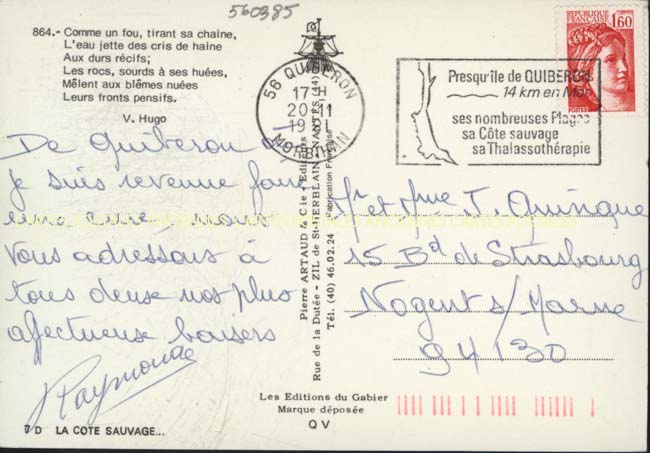 560385
864.- Comme un fou, tirant sa chaîne,
L'eau jette des cris de haine
Aux durs récifs;
Les rocs, sourds à ses huées,
Mêlent aux blêmes nuées
Leurs fronts pensifs.
V. Hugo
56 QUIBERON
17 H
20-11
19
MORBIHAN
REPUBLIQUE FRANÇAISE
1,60
POSTES
Presqu'île de QUIBERON
14 km en Mer
ses nombreuses Plages
sa Côte sauvage
sa Thalassothérapie
De Quiberon où
je suis revenue faire
une cure, nous
vous adressons à
tous deux nos plus
affectueux baisers
Raymonde
Pierre ARTAUD & Cie - Editeurs
Rue de la Dutée - ZIL de St-HERBLAIN - NANTES (44)
Tél. (40) 46.02.24
Fabrication Française
Mr et Mme J. Quinque
15 Bd de Strasbourg
Nogent s/ Marne
94130
Les Editions du Gabier
Marque déposée
QV
7 D LA COTE SAUVAGE...